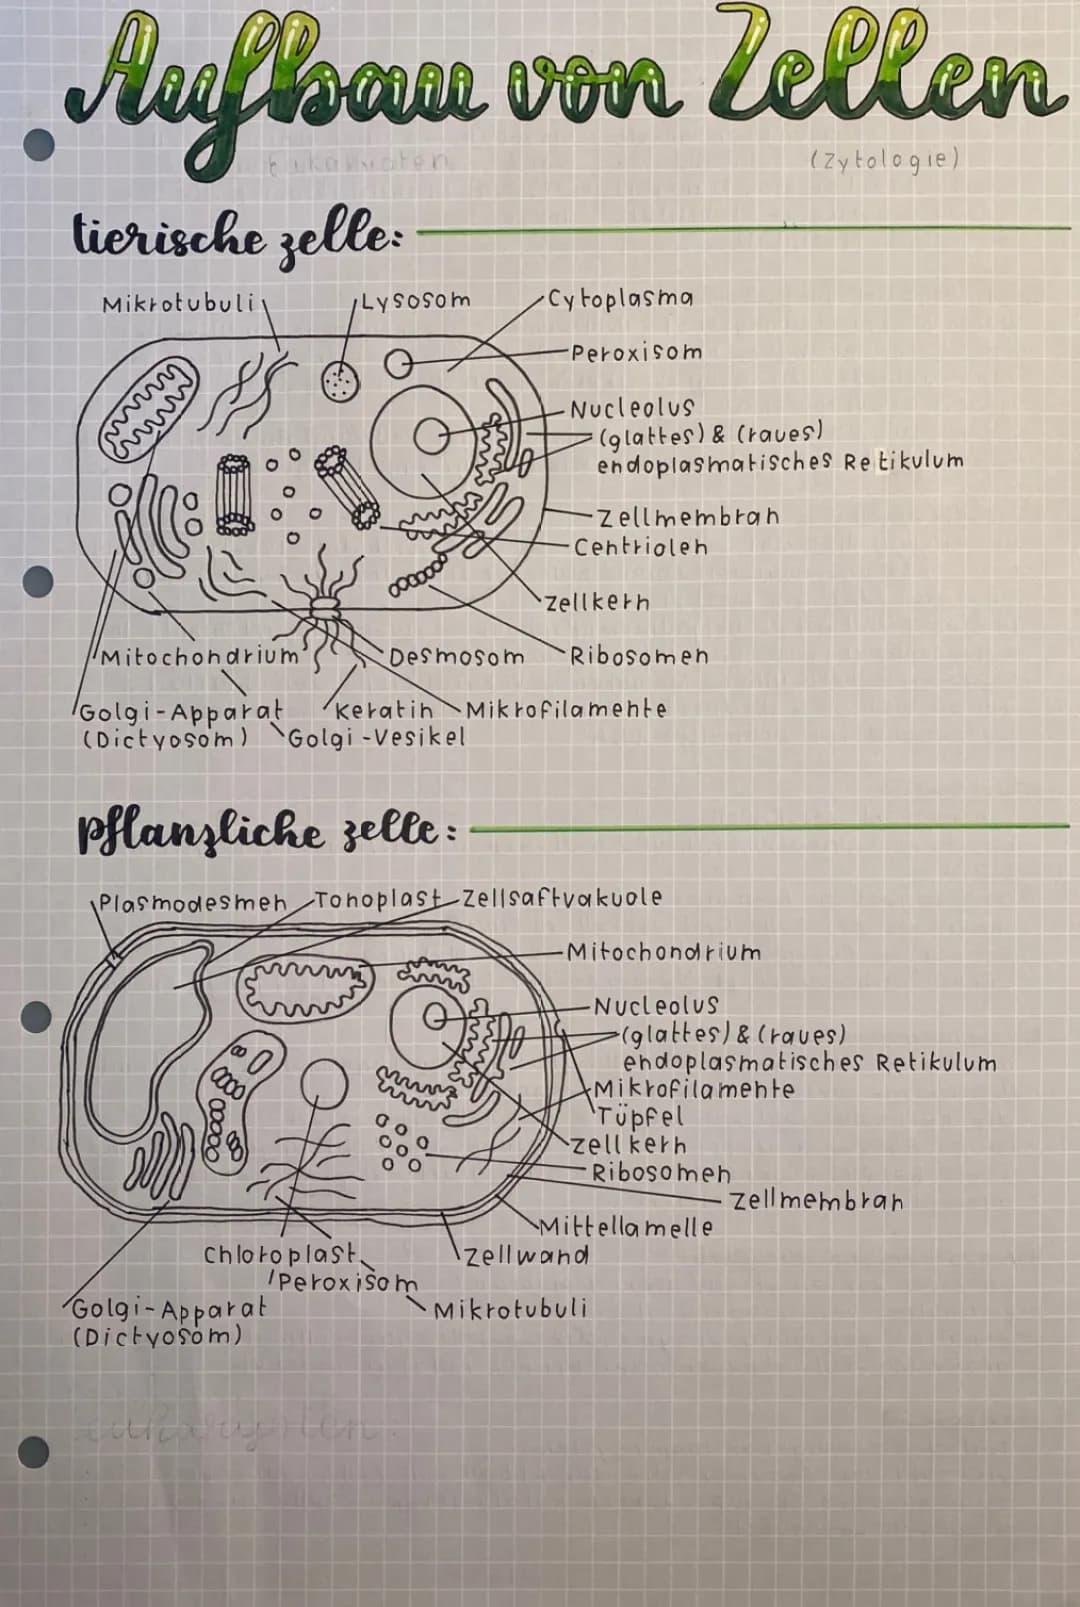 Aufbau von Zellen
Eukaryoten
(Zytologie)
tierische zelle:
Mikrotubuli
Lysosom
Cytoplasma
Peroxisom
Nucleolus
(glattes) & (raues)
endoplasmatisches Retikulum
Zellmembran
Centriolen
Zellkern
Mitochondrium
Desmosom
Ribosomen
Golgi-Apparat
(Dictyosom)
Keratin
Mikrofilamente
Golgi-Vesikel
pflanzliche zelle:
Plasmodesmen
Tonoplast
Zellsaftvakuole
Mitochondrium
Nucleolus
(glattes) & (raues)
endoplasmatisches Retikulum
Mikrofilamente
Tüpfel
Zellkern
Ribosomen
Zellmembran
Mittellamelle
Chloroplast
Zellwand
Peroxisom
Golgi-Apparat
(Dictyosom)
Mikrotubuli
eukaryoten: